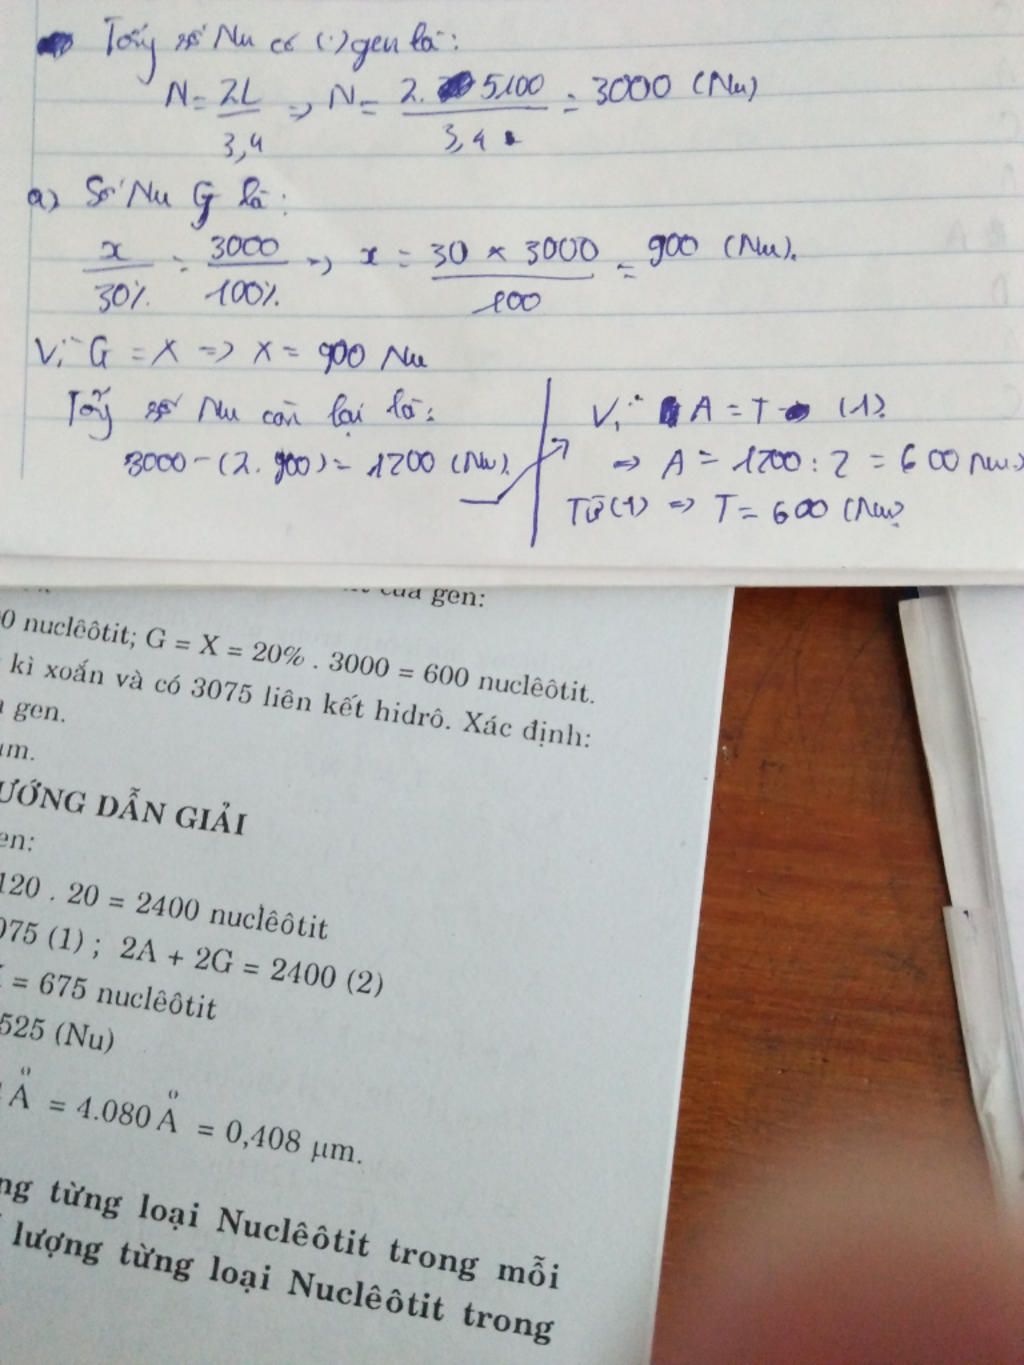 Tổng số Nu có (.) gen là:
N = 2L / 3,4 => N = 2. 5100 / 3,4 = 3000 (Nu)
a) Số Nu G là:
x / 30% = 3000 / 100% => x = 30 × 3000 / 100 = 900 (Nu).
Vì G = X => X = 900 Nu
Tổng số Nu còn lại là:
3000 - (2. 900) = 1200 (Nu).
Vì A = T (1).
=> A = 1200 : 2 = 600 Nu.
Từ (1) => T = 600 (Nu)
của gen:
0 nuclêôtit; G = X = 20% . 3000 = 600 nuclêôtit.
kì xoắn và có 3075 liên kết hidrô. Xác định:
gen.
m.
ƯỚNG DẪN GIẢI
en:
120 . 20 = 2400 nuclêôtit
075 (1) ; 2A + 2G = 2400 (2)
= 675 nuclêôtit
525 (Nu)
Å = 4.080 Å = 0,408 µm.
ng từng loại Nuclêôtit trong mỗi
lượng từng loại Nuclêôtit trong